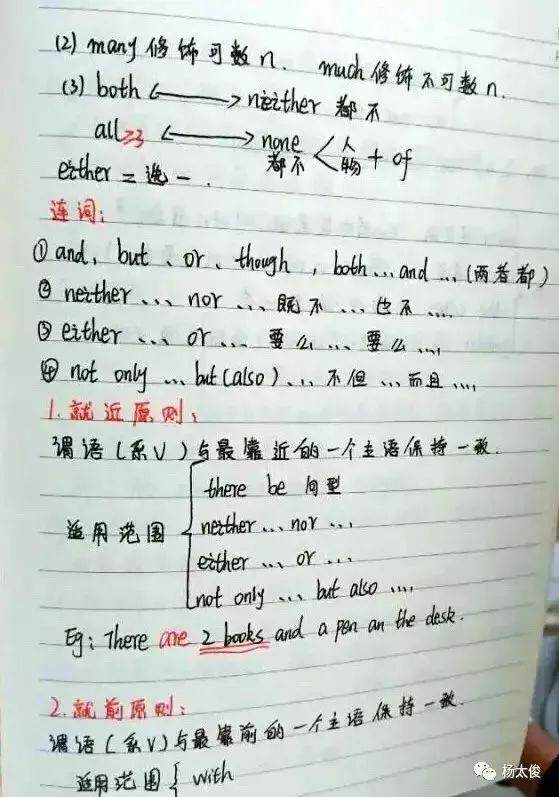 (2) many 修饰可数n. much 修饰不可数n.
(3) both ⟷ neither 都不
all≥3 ⟷ none 都不 < 人 物 + of
either = 选一.
连词:
① and, but、or、though, both...and...(两者都)
② neither... nor... 既不...也不....
③ either... or... 要么...要么....
④ not only ... but(also)... 不但...而且....
1.就近原则:
谓语(系V)与最靠近的一个主语保持一致.
适用范围 { there be 句型
neither...nor...
either... or...
not only... but also....
Eg: There are 2 books and a pen an the desk.
2.就前原则:
谓语(系V)与最靠前的一个主语保持一致.
适用范围 { with
杨太俊